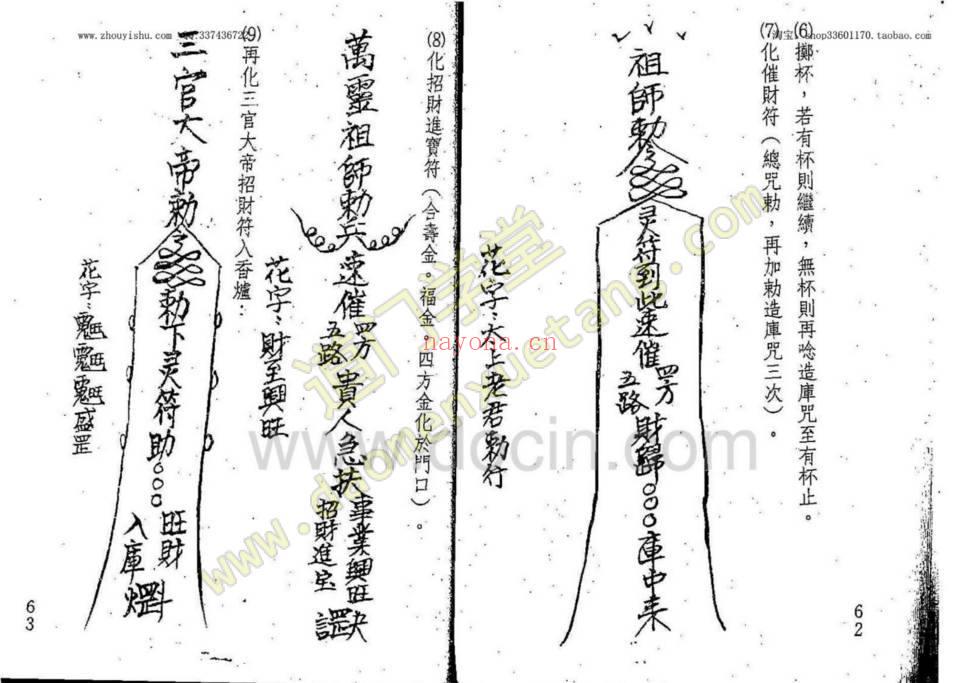 www.zhouyishu.com
淘宝:shop33601170.taobao.com
(6)擲杯，若有杯則繼續，無杯則再唸造庫咒至有杯止。
(7)化催財符（總咒勅，再加勅造庫咒三次）。
祖師勅令灵符到此速催四方五路財歸○○○庫中来
花字：太上老君勅行
62
(8)化招財進寶符（合壽金。福金，四方金化於門口）。
萬靈祖師勅兵速催四方五路貴人急扶事業興旺招財進宝
花字：財至興旺
(9)再化三官大帝招財符入香爐：
三官大帝勅令勅下灵符助○○○旺財入庫
花字：
63
道门学堂
www.daomenxuetang.com
nayona.cn
www.docin.com